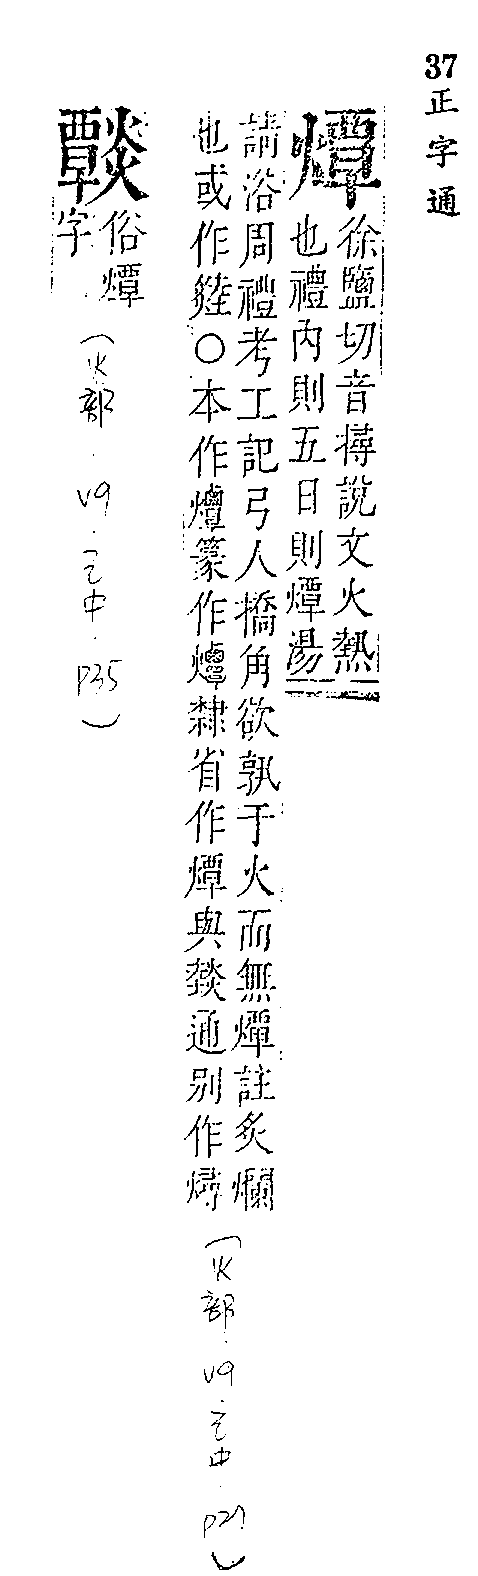 37正字通
燂
徐鹽切音撏說文火熱
也禮內則五日則燂湯
請浴周禮考工記弓人撟角欲孰于火而無燂註炙爛
也或作○本作篆作隸省作燂與燅通別作燖
(火部．v9．巳中．p27)
俗燂
字
(火部．v9．巳中．p35)